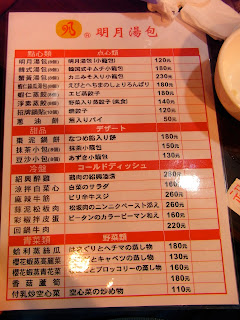 明月湯包
點心類 点心類
明月湯包(8個) 明月湯包(小籠包) 120元
韓式湯包(8個) 韓国式キムチ小籠包 150元
蟹黃湯包(8個) カニみそ入り小籠包 230元
蝦仁燒賣(8個) えびともち米のしょうろんぽう 180元
蝦仁蒸餃(8個) エビ蒸餃子 180元
淨素蒸餃(8個) 野菜入り蒸餃子(素食) 140元
招牌鍋貼(10個) 焼餃子 120元
蔥油餅 無入りパイ 50元
甜品 デザート
棗泥鍋餅 なつめ餡入り餅 180元
抹茶小包 抹茶小籠包 150元
豆沙小包 あずき小籠包 130元
冷盤 コールドディッシュ
紹興醉雞 280元
涼拌白菜心 白菜のサラダ 160元
麻辣牛筋 ピリ辛牛スジ 260元
蒜泥松板肉 松坂肉のニンニクペースト添え 260元
彩椒拌皮蛋 ピータンのカラーピーマン和え 160元
回鍋牛肉 220元
青菜類 野菜類
蛤利蒸絲瓜 はまぐりとヘチマの蒸し物 180元
櫻花蝦蒸高麗菜 とキャベツの蒸し物 130元
櫻花蝦蒸青花菜 とブロッコリーの蒸し物 160元
香菇蘆筍 180元
付乳炒空心菜 空心菜の炒め物 110元